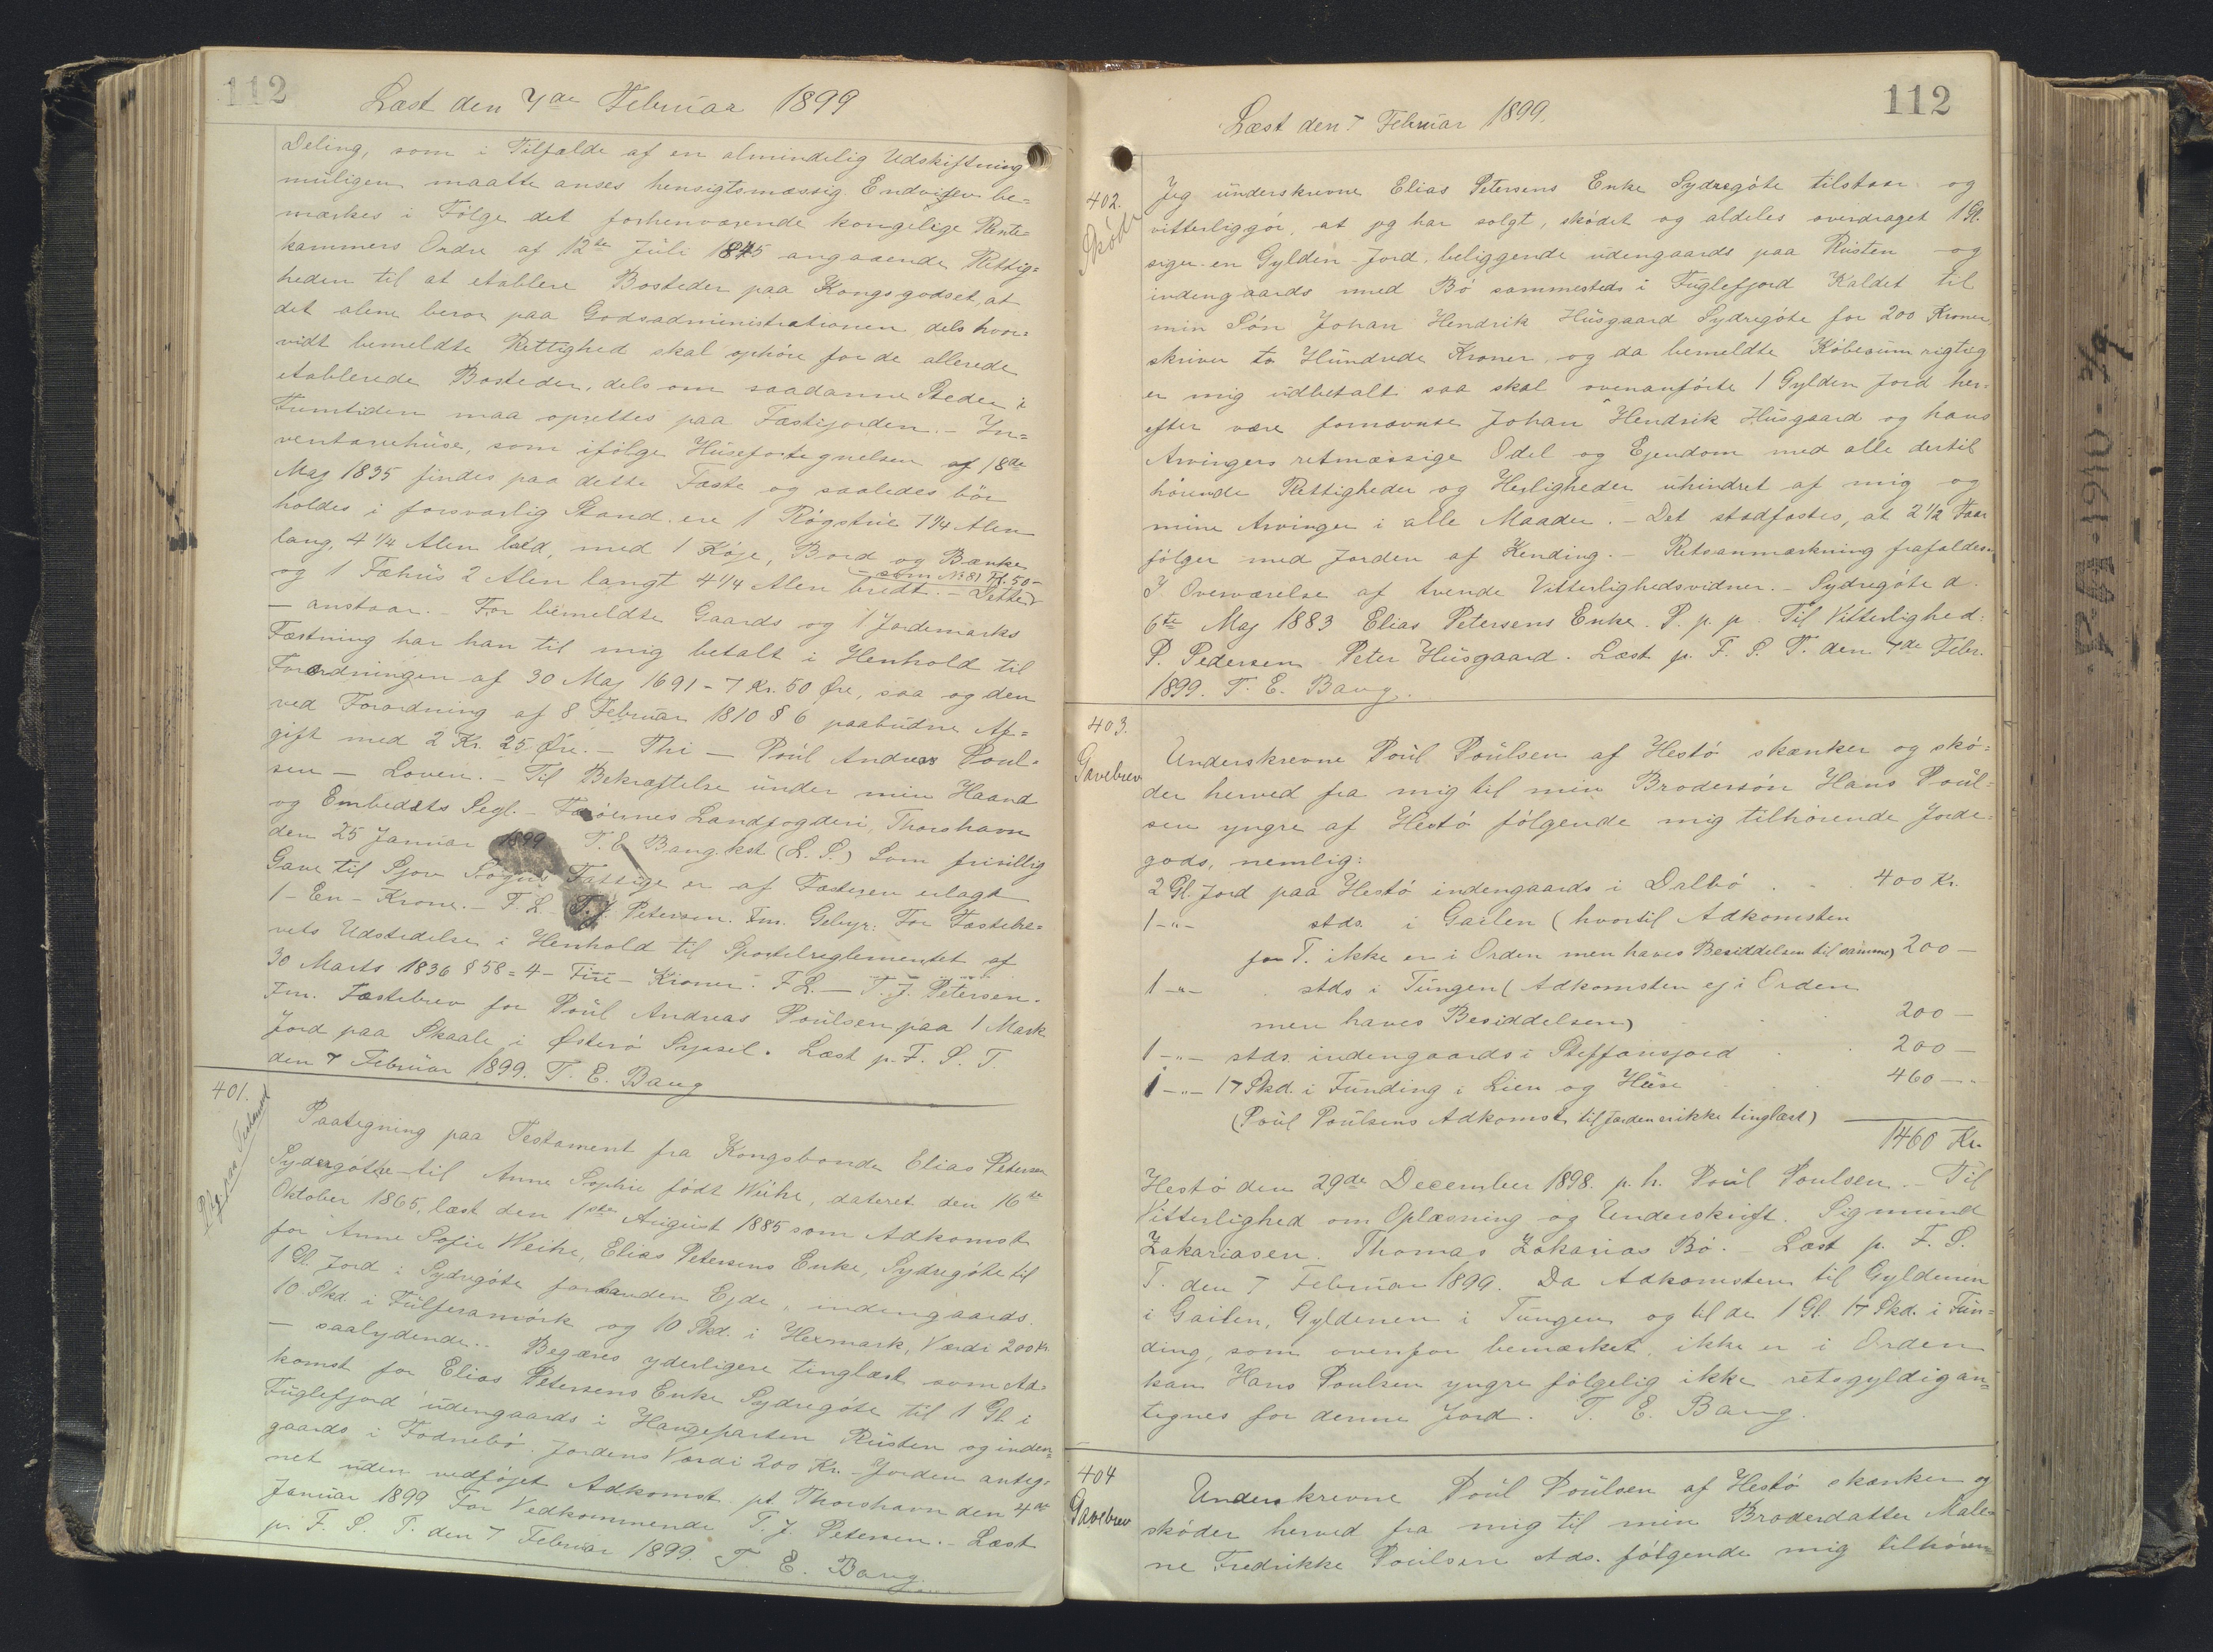 112
Læst den 7de Februar 1899
Deling, som i Tilfælde af en almindelig Udskiftning
muligen maatte anses hensigtsmæssig. Endvider be=
mærkes i Følge det forhenværende kongelige Rente=
kammers Ordre af 12te Juli 1845 angaaende Rettig=
heden til at etablere Bosteder paa Kongsgodset, at
det alene beror paa Godsadministrationen dels hvor=
vidt bemeldte Rettighed skal ophøre for de allerede
etablerede Bosteder, dels om saadanne Steder i
Fremtiden maa oprettes paa Fæstejorden. - In=
ventariehuse, som ifölge Husefortegnelsen af 18de
Maj 1835 findes paa dette Fæste og saaledes bör
holdes i forsvarlig Stand. ere 1 Røgstue 7 1/4 Alen
lang, 4 1/4 Alen bred, med 1 Köje, Bord og Bænke
og 1 Fæhus 2 Alen langt 4 1/4 Alen bredt. - Dette
- som No 81 Fl. 50 -
- anstaar. - For bemeldte Gaards og 1 Jordemarks
Fæstning har han til mig betalt i Henhold til
Forordningen af 30 Maj 1691 - 7 Kr. 50 Øre, saa og den
ved Forordning af 8 Februar 1810 § 6 paabudne Af=
gift med 2 Kr. 25 Øre. - Thi - Poul Andreas Poul=
sen - Loven. - Til Bekræftelse under min Haand
og Embedets Segl. - Færöernes Landfogderi, Thorshavn
den 25 Januar 1899 T. E Bang. kst (L. S.) Som frivillig
Gave til Sjov Sogns Fattige er af Fæsteren erlagt
1 - En - Krone. - F. L. T. J. Petersen. Fm. Gebyr: For Fæstebre=
vets Udstedelse i Henhold til Sportelreglementet af
30 Marts 1836 § 58 = 4 - Fire - Kroner. F. L. - T. J. Petersen.
Fm. Fæstebrev for Poul Andreas Poulsen paa 1 Mark
Jord paa Skaale i Østerö Syssel. Læst p. F. S. T.
den 7 Februar 1899. T. E. Bang
401.
Paategning paa Testament fra Kongsbonde Elias Petersen
Sydregöthe til Anne Sophie födt Weihe, dateret den 16de
Oktober 1865, læst den 1ste August 1885 som Adkomst
for Anne Sofie Weihe, Elias Petersens Enke, Sydregöte til
1 Gl. Jord i Sydregöte forhenden Ejde, indengaards.
10 Skd. i Fulferamörk og 10 Skd. i Hexmark, Værdi 200 Kr.
- saalydende.. Begæres yderligere tinglæst som Ad=
komst for Elias Petersens Enke Sydregöte til 1 Gl. i
Fuglefjord udengaards i Haugeparten Rusten og inden=
gaards i Fodnebö. Jordens Værdi 200 Kr. - Jorden anteg=
net uden vedföjet Adkomst. pt. Thorshavn den 4de
Januar 1899 For Vedkommende T. J. Petersen. - Læst
p. F. S. T. den 7 Februar 1899. T. E. Bang.
112
Læst den 7 Februar 1899.
402.
Sköde
Jeg underskrevne Elias Petersens Enke Sydregöte tilstaar og
vitterliggör, at jeg har solgt, sködet og aldeles overdraget 1 Gl.
siger en Gylden Jord, beliggende udengaards paa Rusten og
indengaards med Bö sammesteds i Fuglefjord Kaldet til
min Sön Johan Hendrik Husgaard Sydregöte for 200 Kroner,
skriver to Hundrede Kroner, og da bemeldte Köbesum rigtig
er mig udbetalt saa skal ovenanförte 1 Gylden Jord her=
efter være fornævnte Johan Hendrik Husgaard og hans
Arvingers retmæssige Odel og Ejendom med alle dertil
hörende Rettigheder og Herligheder uhindret af mig og
mine Arvinger i alle Maader. - Det stadfæstes, at 2 1/2 Faar
fölger med Jorden af Kending. - Retsanmærkning frafaldes.
I Overværelse af tvende Vitterlighedsvidner. - Sydregöte d.
6te Maj 1883 Elias Petersens Enke. P. p. p. Til Vitterlighed:
P. Pedersen Peter Husgaard. Læst p. F. S. T. den 7de Febr.
1899. T. E. Bang.
403.
Gavebrev
Underskrevne Poul Poulsen af Hestö skænker og skö=
der herved fra mig til min Brodersön Hans Poul=
sen yngre af Hestö fölgende mig tilhörende Jorde=
gods, nemlig:
2 Gl. Jord paa Hestö indengaards i Dalbö . . 400 Kr.
1 -"- stds. i Gailen (hvortil Adkomsten
for T. ikke er i Orden men haves Besiddelsen til samme) 200 -
1 -"- stds i Tungen (Adkomsten ej i Orden
men haves Besiddelsen) . . 200 -
1 -"- stds. indengaards i Steffansjord . . 200 -
1 -"- 17 Skd. i Funding i Lien og Huse . . . 460 -"-
(Poul Poulsens Adkomst til Jorden er ikke tinglæst)
1460 Kr
Hestö den 29de December 1898. p. h. Poul Poulsen. - Til
Vitterlighed om Oplæsning og Underskrift. Sigmund
Zakariasen. Thomas Zakarias Bö. - Læst p. F. S.
T. den 7 Februar 1899. Da Adkomsten til Gyldenen
i Gailen, Gyldenen i Tungen og til de 1 Gl. 17 Skd. i Fun=
ding, som ovenfor bemærket, ikke er i Orden
kan Hans Poulsen yngre fölgelig ikke retsgyldig an=
tegnes for denne Jord. T. E. Bang.
404
Gavebrev
Underskrevne Poul Poulsen af Hestö skænker og
sköder herved fra mig til min Broderdatter Male=
ne Fredrikke Poulsen stds. fölgende mig tilhören=